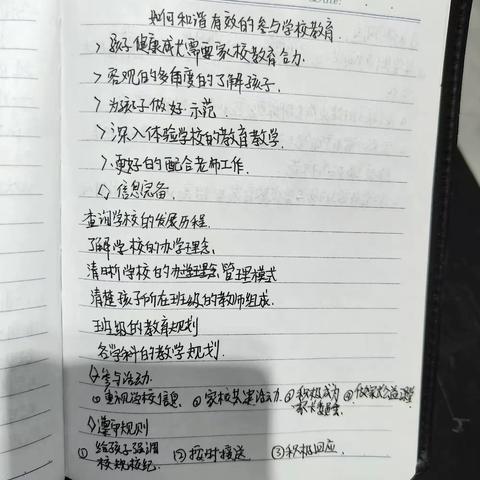 如何和谐有效的参与学校教育.
> 孩子健康成长需要家校教育合力.
> 客观的多角度的了解孩子.
> 为孩子做好示范.
> 深入体验学校的教育教学.
> 更好的配合老师工作.
◇ 信息完备.
查询学校的发展历程.
了解学校的办学理念.
清晰学校的办学理念管理模式
清楚孩子所在班级的教师组成.
班级的教育规划
各学科的教学规划.
◇参与活动.
①重视学校信息 ②家校共建活动 ③积极成为家长委员会. ④
◇遵守规则
①给孩子强调校规校纪. ②按时接送 ③积极回应.